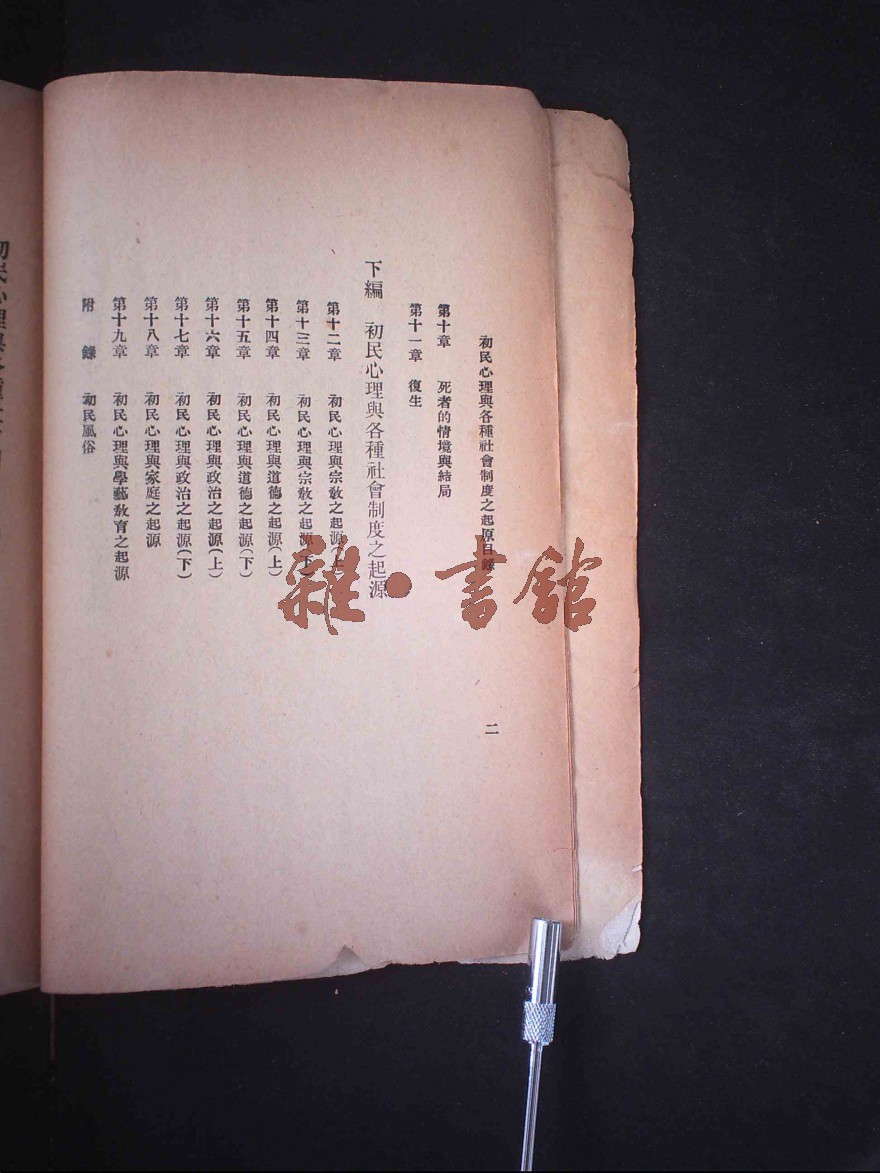 初民心理與各種社會制度之起原目錄
二
第十章 死者的情境與結局
第十一章 復生
下編 初民心理與各種社會制度之起源
第十二章 初民心理與宗敎之起源(上)
第十三章 初民心理與宗敎之起源(下)
第十四章 初民心理與道德之起源(上)
第十五章 初民心理與道德之起源(下)
第十六章 初民心理與政治之起源(上)
第十七章 初民心理與政治之起源(下)
第十八章 初民心理與家庭之起源
第十九章 初民心理與學藝敎育之起源
附錄 初民風俗
雜·書館